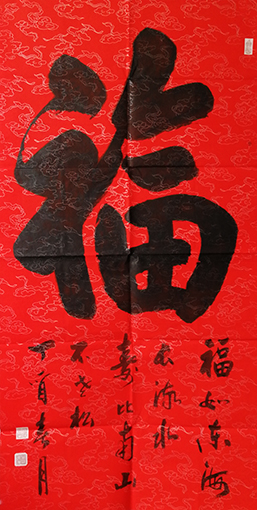 福
福如东海
长流水
寿比南山
不老松
丁酉春月